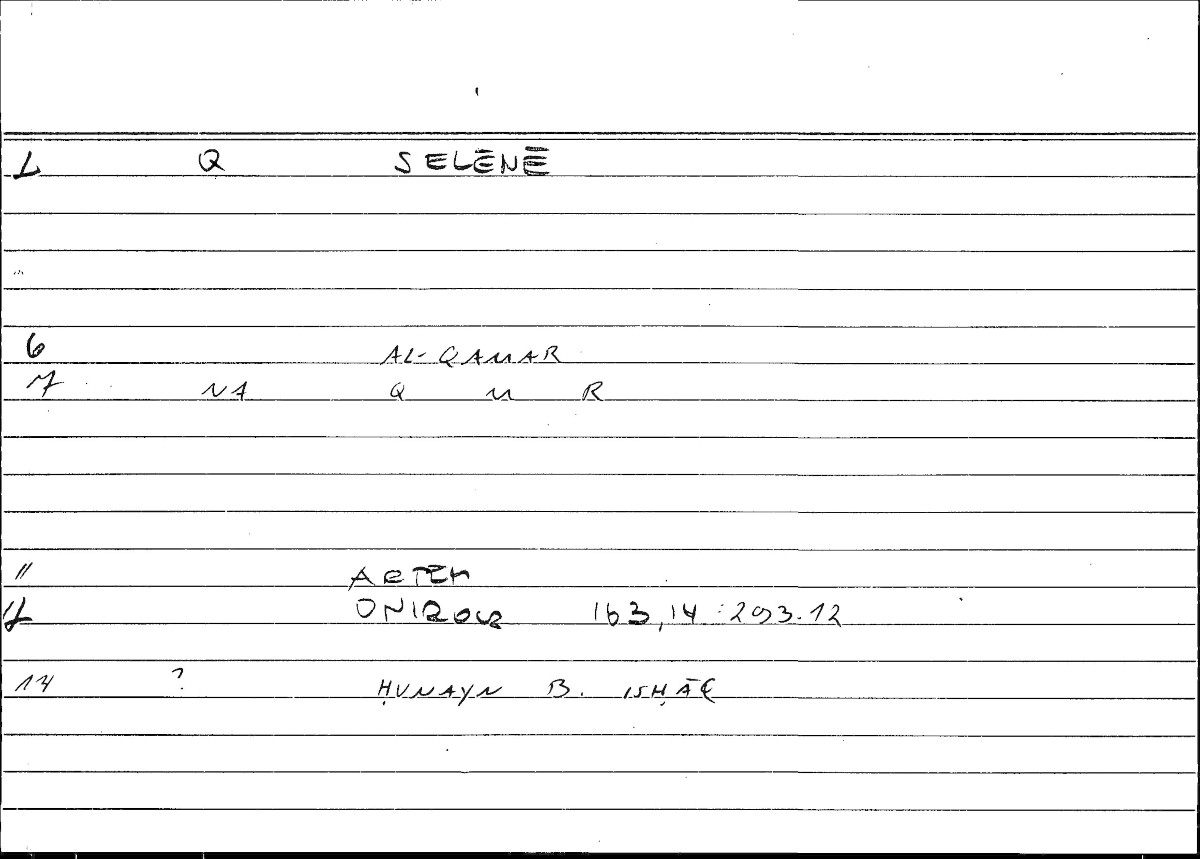 1 Q SELĒNĒ
6 AL-QAMAR
7 NA Q M R
11 ARTEM
12 ONIROCR 163,14 : 293.12
14 ? ḤUNAYN B. ISḤĀQ